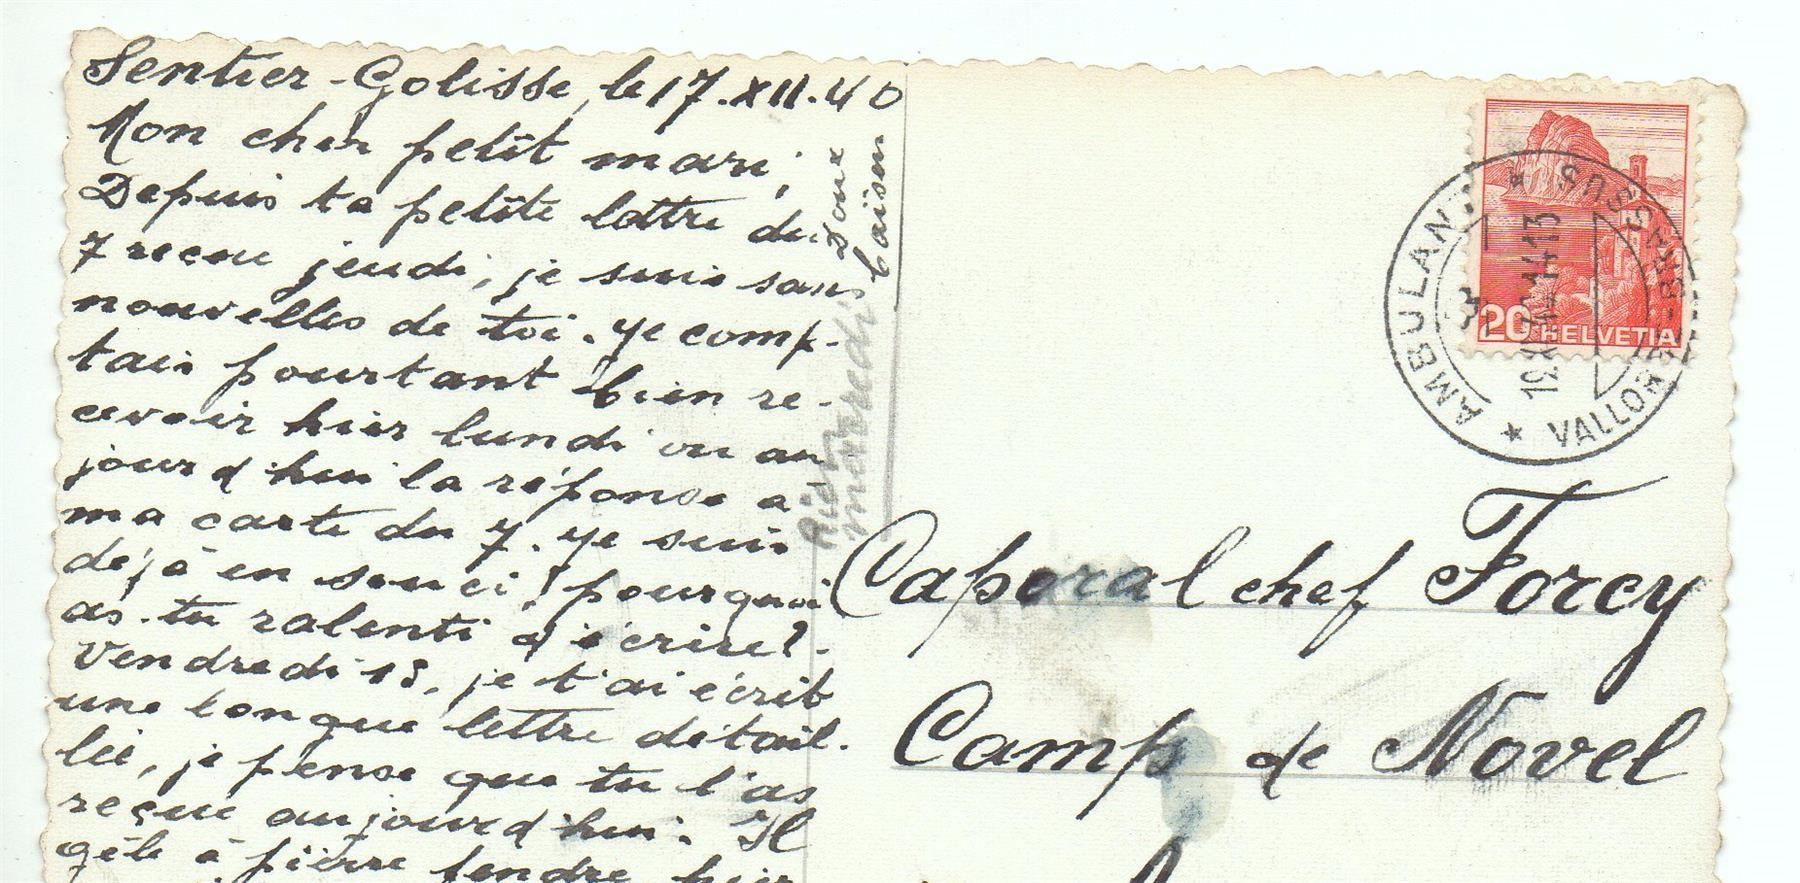 Sentier-Golisse, le 17.XII.40
Mon cher petit mari,
Depuis ta petite lettre du
7 reçue jeudi, je suis sans
nouvelles de toi. Je comp-
tais pourtant bien re-
cevoir hier lundi ou au
jourd'hui la réponse à
ma carte du 7. Je suis
déjà en souci! pourquoi
as-tu ralenti d'écrire?
Vendredi 13, je t'ai écrit
une longue lettre détail-
lée, je pense que tu l'as
reçue aujourd'hui. Il
gèle à pierre fendre hier
Doux
baisers
mercredi
Caporal chef Forcy
Camp de Novel
20 HELVETIA
AMBULANT
VALLORBE-BRASSUS
19.XII.40